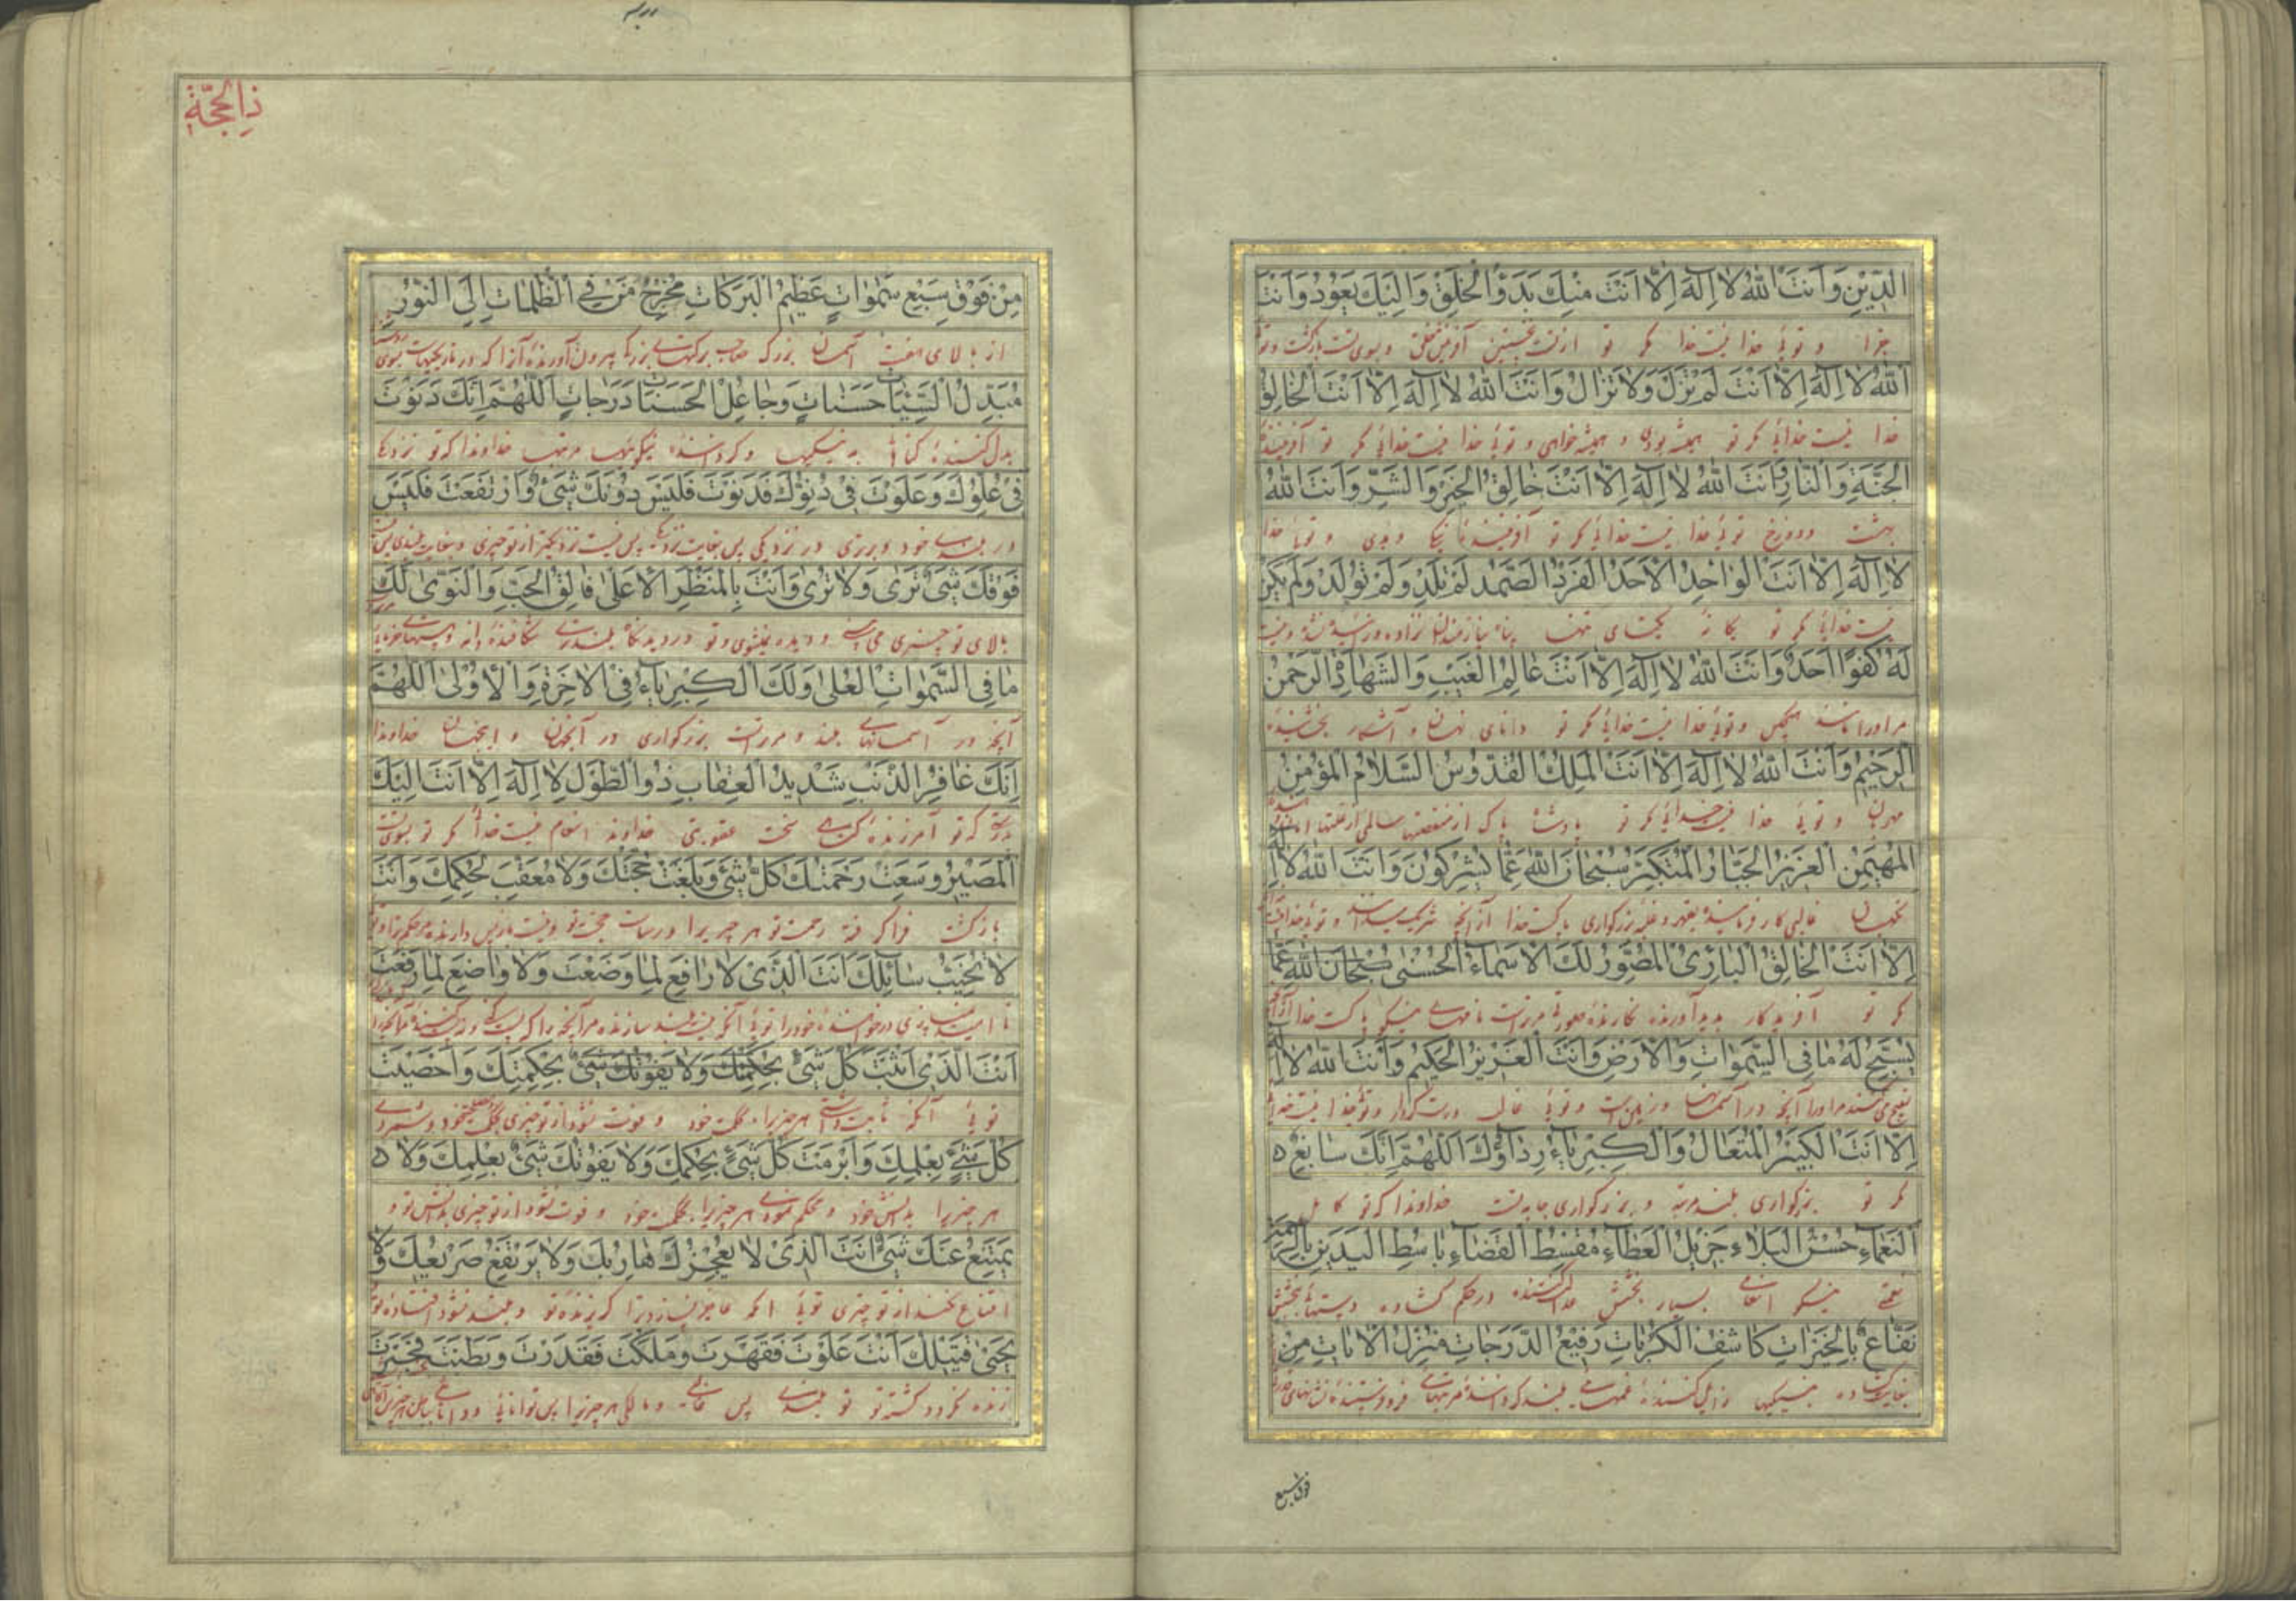 الدِّينِ وَاَنْتَ اللهُ لا اِلهَ اِلاّ اَنْتَ مِنْكَ بَدَؤُ الْخَلْقِ وَاِلَيْكَ يَعُودُ وَاَنْتَ
جزا و توئی خدا نیست خدا مگر تو از تست نخستین آفرینش خلق و بسوی تست بازگشت و توئی
اللهُ لا اِلهَ اِلاّ اَنْتَ لَمْ تَزَلْ وَلا تَزالُ وَاَنْتَ اللهُ لا اِلهَ اِلاّ اَنْتَ الْخالِقُ
خدا نیست خدائی مگر تو همیشه بودی و همیشه خواهی و توئی خدا نیست خدائی مگر تو آفریننده
الْجَنَّةِ وَالنّارِ اَنْتَ اللهُ لا اِلهَ اِلاّ اَنْتَ خالِقُ الْخَيْرِ وَالشَّرِّ وَاَنْتَ اللهُ
بهشت و دوزخ توئی خدا نیست خدائی مگر تو آفرینندۀ نیکی و بدی و توئی خدا
لا اِلهَ اِلاّ اَنْتَ الْواحِدُ الْاَحَدُ الْفَرْدُ الصَّمَدُ لَمْ يَلِدْ وَلَمْ يُولَدْ وَلَمْ يَكُنْ
نیست خدائی مگر تو یگانه یکتای تنها پناه نیازمندان نزاده و زائیده نشده و نیست
لَهُ كُفُوًا اَحَدٌ وَاَنْتَ اللهُ لا اِلهَ اِلاّ اَنْتَ عالِمُ الْغَيْبِ وَالشَّهادَةِ الرَّحْمنُ
مر او را مانند هیچکس و توئی خدا نیست خدائی مگر تو دانای نهان و آشکار بخشنده
الرَّحيمُ وَاَنْتَ اللهُ لا اِلهَ اِلاّ اَنْتَ الْمَلِكُ الْقُدُّوسُ السَّلامُ الْمُؤْمِنُ
مهربان و توئی خدا نیست خدائی مگر تو پادشاه پاک از منقصتها سالمی از علتها
الْمُهَيْمِنُ الْعَزيزُ الْجَبّارُ الْمُتَكَبِّرُ سُبْحانَ اللهِ عَمّا يُشْرِكُونَ وَاَنْتَ اللهُ لا اِلهَ
نگهبان غالبی بزرگواری پاکست خدا از آنچه شریک و توئی خدا نیست
اِلاّ اَنْتَ الْخالِقُ الْبارِئُ الْمُصَوِّرُ لَكَ الْاَسْماءُ الْحُسْنى سُبْحانَ اللهِ عَمّا
مگر تو آفریدگار پدید آورنده نگارندۀ صورتها مر تراست نامهای نیکو پاکست خدا
يُسَبِّحُ لَهُ ما فِى السَّمواتِ وَالْاَرْضِ وَاَنْتَ الْعَزيزُ الْحَكيمُ وَاَنْتَ اللهُ لا اِلهَ
تسبیح میکند مر او را آنچه در آسمانها و زمین است و توئی غالب درست کردار و توئی خدا نیست خدائی
اِلاّ اَنْتَ الْكَبيرُ الْمُتَعالُ وَالْكِبْرِياءُ رِداؤُكَ اَللّهُمَّ اِنَّكَ سابِغُ
مگر تو بزرگواری بلند مرتبه و بزرگواری جامه تست خداوندا که تو کامل
النَّعْماءِ حَسَنُ الْبَلاءِ جَزيلُ الْعَطاءِ مُقْسِطُ الْقَضاءِ باسِطُ الْيَدَيْنِ بِالرَّحْمَةِ
نعمتی نیکو بسیار بخشش در حکم گشاده
نَفّاعٌ بِالْخَيْراتِ كاشِفُ الْكُرُباتِ رَفيعُ الدَّرَجاتِ مُنْزِلُ الْاياتِ مِنْ
فوق سبع
ذا لحجّة
مِنْ فَوْقِ سَبْعِ سَمواتٍ عَظيمُ الْبَرَكاتِ مُخْرِجُ مَنْ فِى الظُّلُماتِ اِلَى النُّورِ
از بالای هفت آسمان بزرگ صاحب برکتهای بزرگ بیرون آورندۀ آنرا که در تاریکیهاست بسوی
مُبَدِّلُ السَّيِّئاتِ حَسَناتٍ وَجاعِلُ الْحَسَناتِ دَرَجاتٍ اَللّهُمَّ اِنَّكَ دَنَوْتَ
بدل کنندۀ گناهان به نیکیها و گردانندۀ نیکوئیها مرتبها خداوندا که تو نزدیک
فى عُلُوِّكَ وَعَلَوْتَ فى دُنُوِّكَ فَدَنَوْتَ فَلَيْسَ دُونَكَ شَىْءٌ وَارْتَفَعْتَ فَلَيْسَ
در بلندی خود و برتری در نزدیکی پس نیست نزدیکتر از تو چیزی
فَوْقَكَ شَىْءٌ تَرى وَلا تُرى وَاَنْتَ بِالْمَنْظَرِ الْاَعْلى فالِقُ الْحَبِّ وَالنَّوى لَكَ
بالای تو چیزی می بینی و دیده نمیشوی و تو در دیدگاه بلندتری شکافندۀ دانه
ما فِى السَّمواتِ الْعُلى وَلَكَ الْكِبْرِياءُ فِى الْاخِرَةِ وَالْاُولى اَللّهُمَّ
آنچه در آسمانهای بلند و مر تراست بزرگواری در آنجهان و اینجهان خداوندا
اِنَّكَ غافِرُ الذَّنْبِ شَديدُ الْعِقابِ ذُو الطَّوْلِ لا اِلهَ اِلاّ اَنْتَ اِلَيْكَ
که تو آمرزندۀ سخت عقوبتی خداوند انعام نیست خدا مگر تو بسوی تست
الْمَصيرُ وَسِعَتْ رَحْمَتُكَ كُلَّ شَىْءٍ وَبَلَغَتْ حُجَّتُكَ وَلا مُعَقِّبَ لِحُكْمِكَ وَاَنْتَ
بازگشت فرا گرفته رحمت تو هر چیز را و رساست حجت تو و نیست باز پس دارنده مر حکم ترا و تو
لا يُخَيِّبُ سائِلَكَ اَنْتَ الَّذى لا رافِعَ لِما وَضَعْتَ وَلا واضِعَ لِما رَفَعْتَ
اَنْتَ الَّذى اَثْبَتَّ كُلَّ شَىْءٍ بِحُكْمِكَ وَلا يَفُوتُكَ شَىْءٌ بِحِكْمَتِكَ وَاَحْصَيْتَ
توئی آنکه هر چیز را بحکمت خود و فوت نشود از تو چیزی
كُلَّ شَىْءٍ بِعِلْمِكَ وَاَبْرَمْتَ كُلَّ شَىْءٍ بِحُكْمِكَ وَلا يَفُوتُكَ شَىْءٌ بِعِلْمِكَ وَلا
هر چیز را بدانش خود و محکم نمودی هر چیز را بحکمت خود و فوت نشود از تو چیزی بدانش تو و
يَمْتَنِعُ عَنْكَ شَىْءٌ اَنْتَ الَّذى لا يُعْجِزُكَ هارِبُكَ وَلا يَرْتَفِعُ صَريعُكَ وَلا
امتناع نکند از تو چیزی توئی آنکه عاجز نسازد ترا گریزندۀ تو و بلند نشود افتادۀ تو
يَحْيى قَتيلُكَ اَنْتَ عَلَوْتَ فَقَهَرْتَ وَمَلَكْتَ فَقَدَرْتَ وَبَطَنْتَ فَخَبَرْتَ
زنده نگردد کشتۀ تو تو بلندی پس غالبی و مالکی هر چیز را پس توانائی